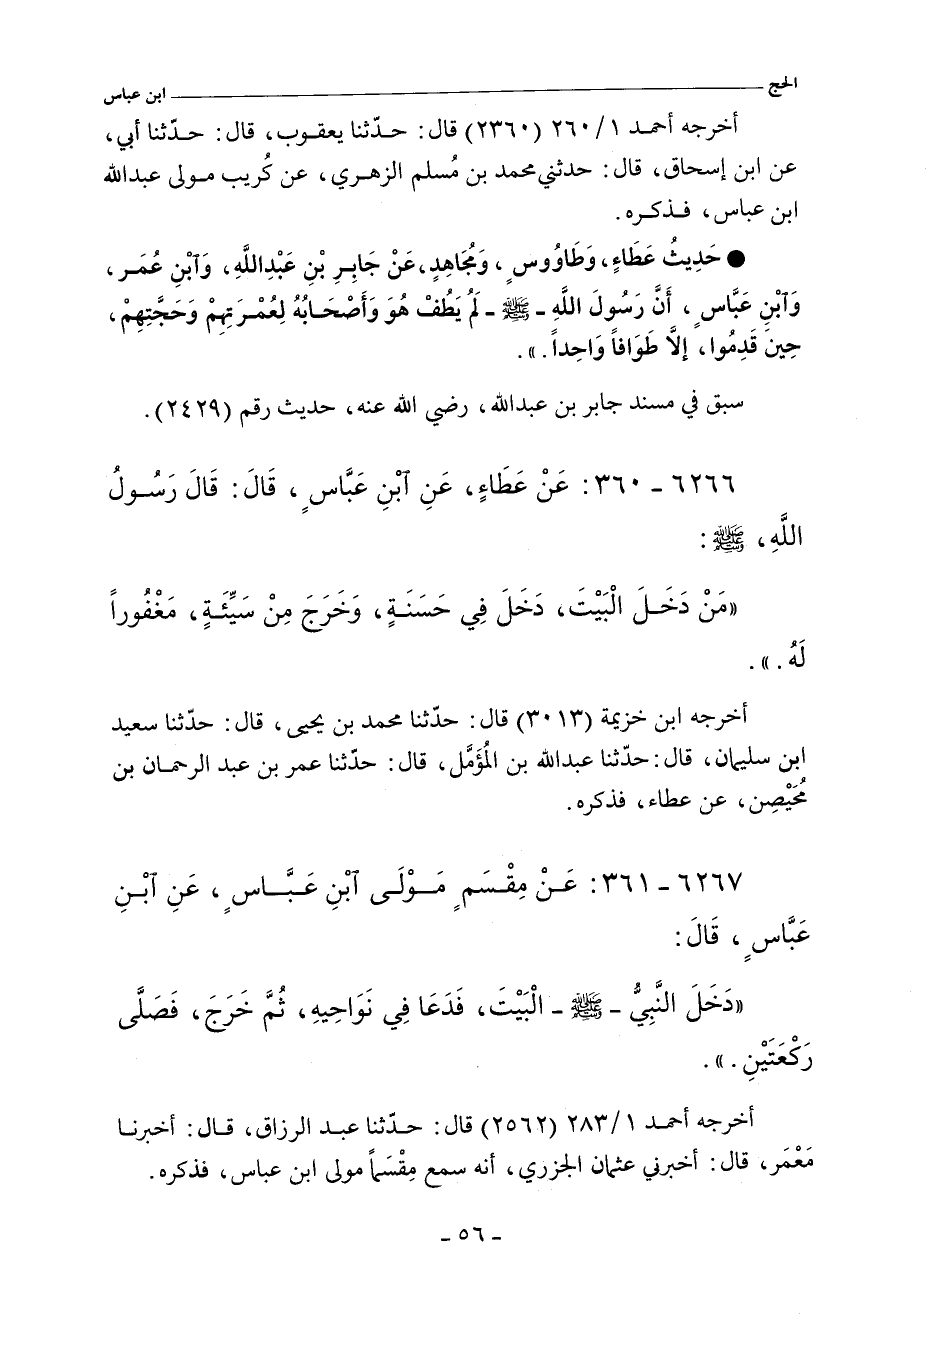 الحج ــــــــــ ابن عباس
أخرجه أحمد ١/ ٢٦٠ (٢٣٦٠) قال: حدّثنا يعقوب، قال: حدّثنا أبي،
عن ابن إسحاق، قال: حدثني محمد بن مُسلم الزهري، عن كُريب مولى عبدالله
ابن عباس، فذكره.
● حَدِيثُ عَطَاءٍ، وَطَاوُوسٍ، وَمُجَاهِدٍ، عَنْ جَابِرِ بْنِ عَبْدِاللَّهِ، وَآبْنِ عُمَرَ،
وَآبْنِ عَبَّاسٍ، أَنَّ رَسُولَ اللَّهِ - ﷺ - لَمْ يَطُفْ هُوَ وَأَصْحَابُهُ لِعُمْرَتِهِمْ وَحَجَّتِهِمْ،
حِينَ قَدِمُوا، إِلَّا طَوَافاً وَاحِداً.».
سبق في مسند جابر بن عبدالله، رضي الله عنه، حديث رقم (٢٤٢٩).
٦٢٦٦ - ٣٦٠: عَنْ عَطَاءٍ، عَنِ آبْنِ عَبَّاسٍ، قَالَ: قَالَ رَسُولُ
اللَّهِ، ﷺ:
«مَنْ دَخَلَ الْبَيْتَ، دَخَلَ فِي حَسَنَةٍ، وَخَرَجَ مِنْ سَيِّئَةٍ، مَغْفُوراً
لَهُ.».
أخرجه ابن خزيمة (٣٠١٣) قال: حدّثنا محمد بن يحيى، قال: حدّثنا سعيد
ابن سليمان، قال: حدّثنا عبدالله بن المُؤَمَّل، قال: حدّثنا عمر بن عبد الرحمان بن
مُحَيْصِن، عن عطاء، فذكره.
٦٢٦٧ - ٣٦١: عَنْ مِقْسَمٍ مَوْلَى آبْنِ عَبَّاسٍ، عَنِ آبْنِ
عَبَّاسٍ، قَالَ:
«دَخَلَ النَّبِيُّ - ﷺ - الْبَيْتَ، فَدَعَا فِي نَوَاحِيهِ، ثُمَّ خَرَجَ، فَصَلَّى
رَكْعَتَيْنِ.».
أخرجه أحمد ١/ ٢٨٣ (٢٥٦٢) قال: حدّثنا عبد الرزاق، قال: أخبرنا
مَعْمَر، قال: أخبرني عثمان الجزري، أنه سمع مِقْسَماً مولى ابن عباس، فذكره.
- ٥٦ -